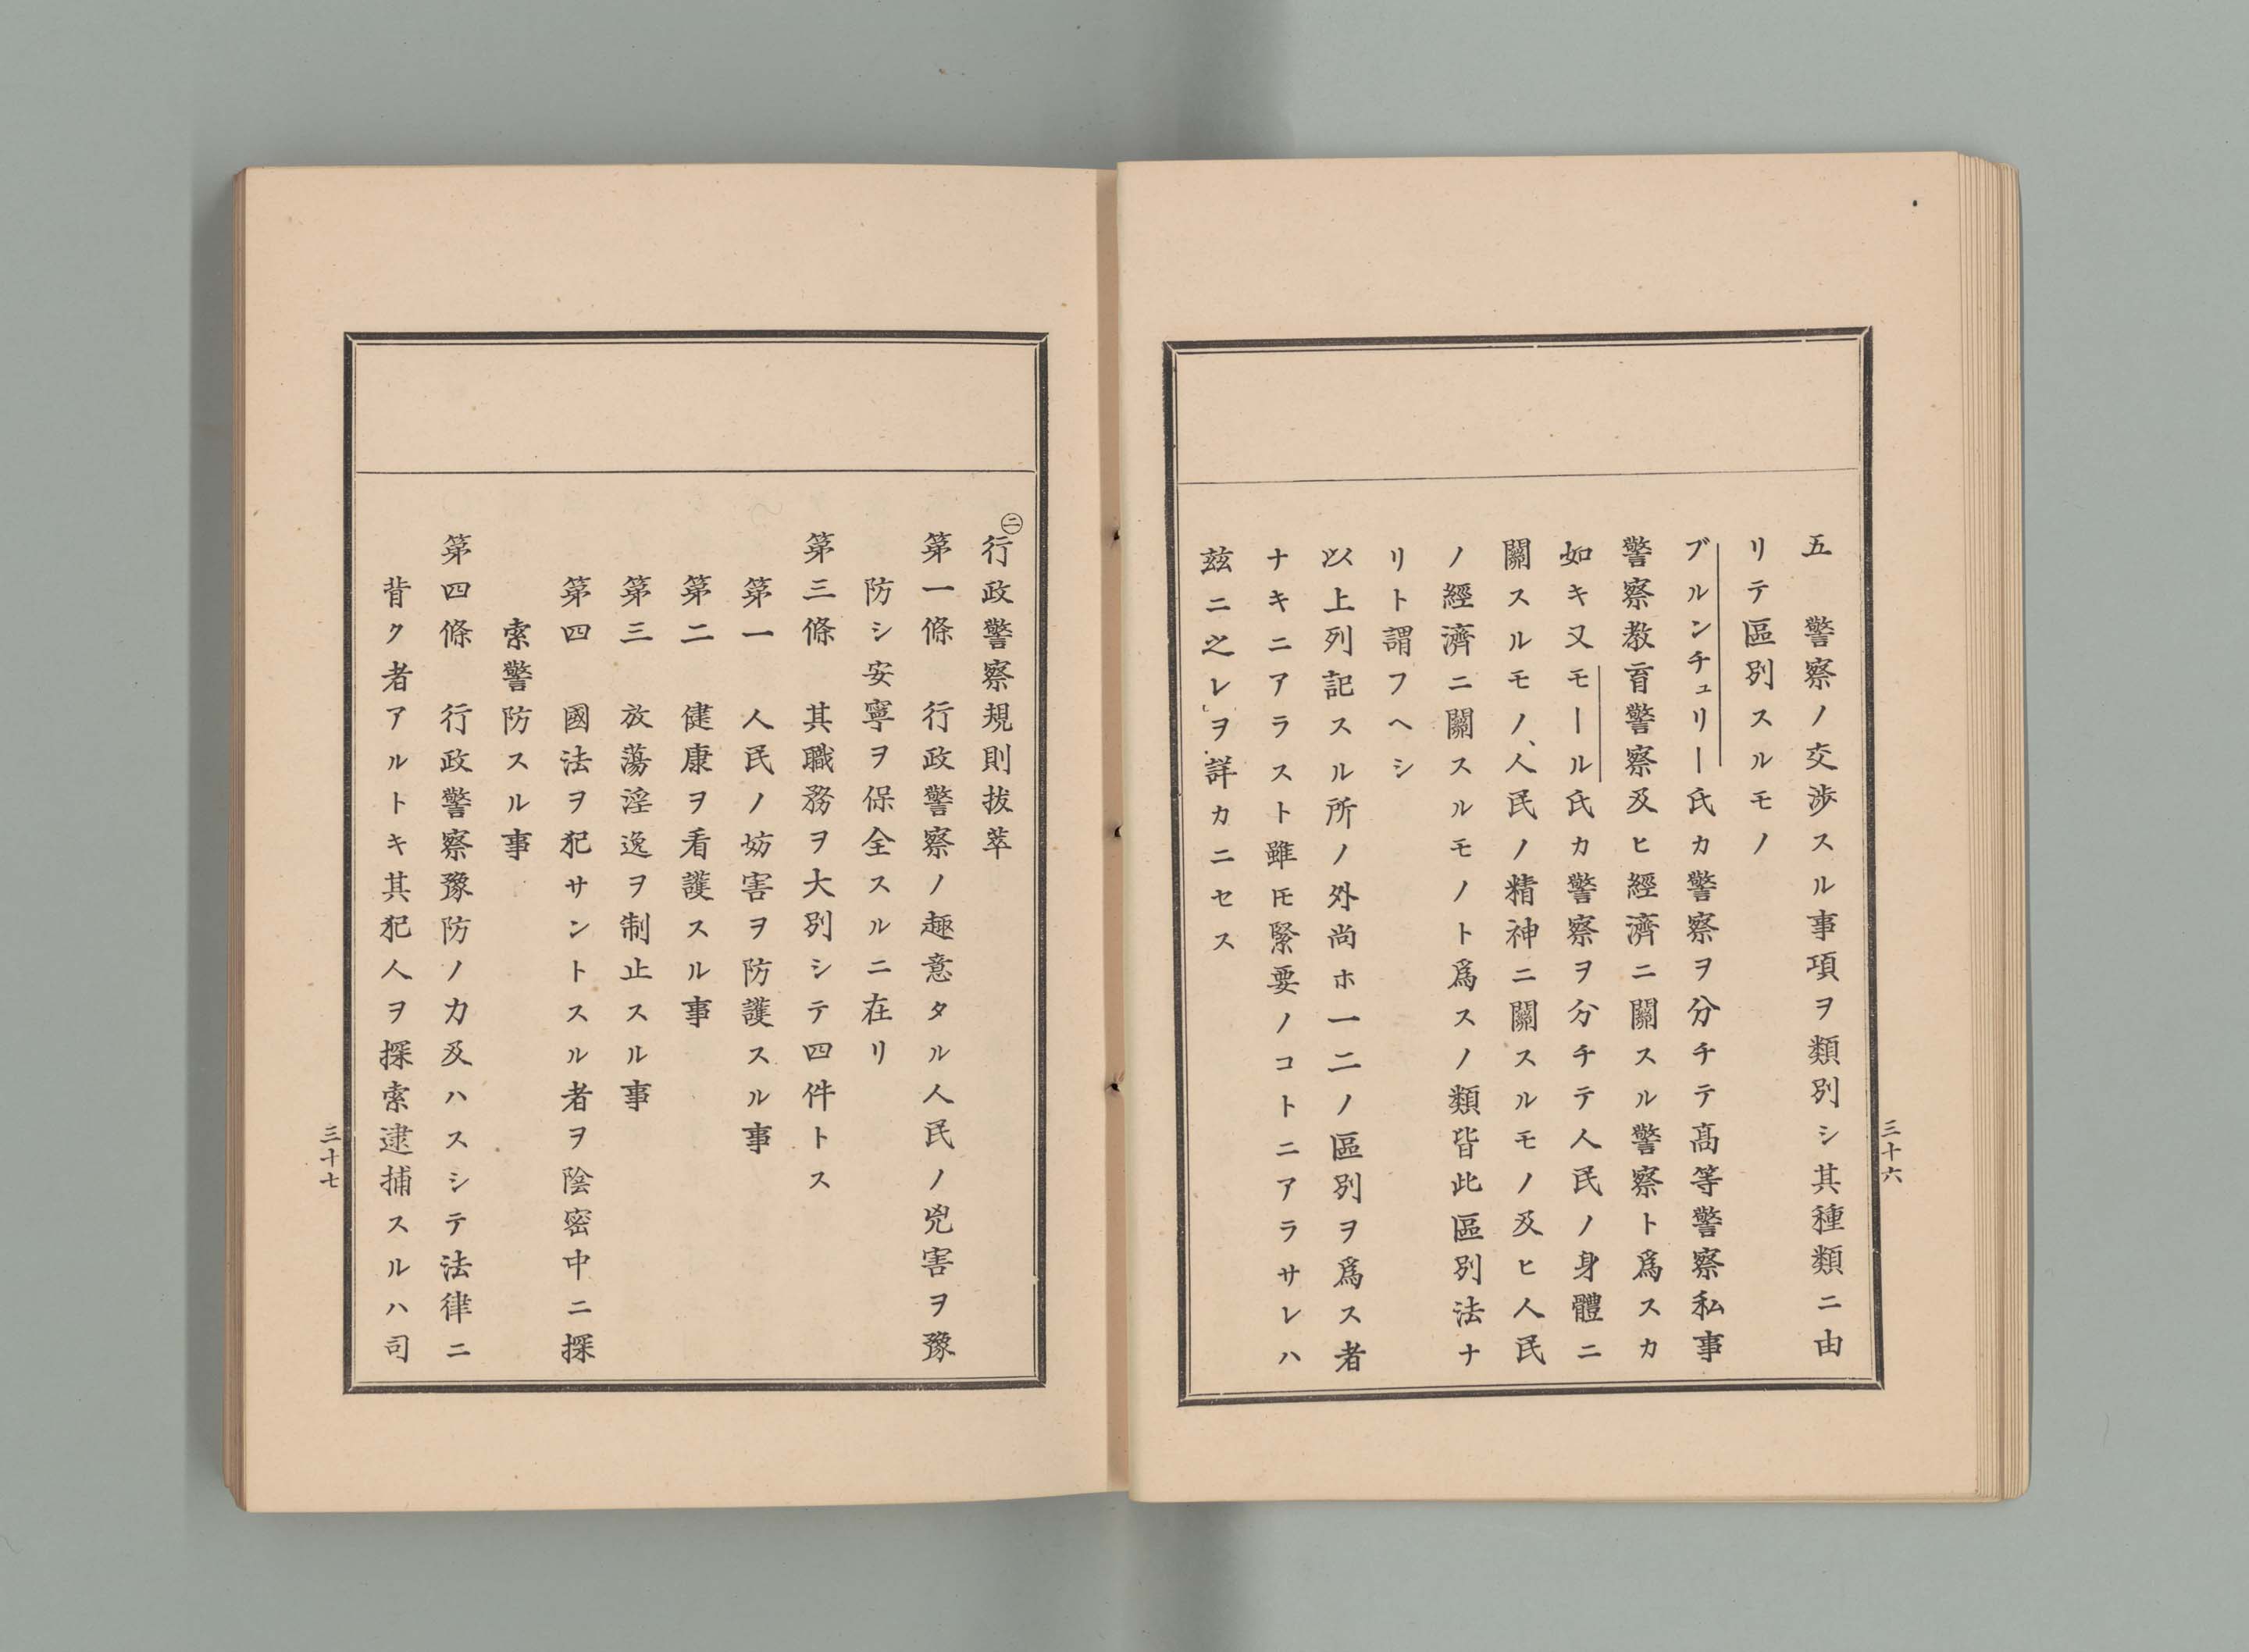 五　警察ノ交渉スル事項ヲ類別シ其種類ニ由
リテ區別スルモノ
ブルンチュリー氏カ警察ヲ分チテ高等警察私事
警察教育警察及ヒ經濟ニ關スル警察ト爲スカ
如キ又モール氏カ警察ヲ分チテ人民ノ身體ニ
關スルモノ、人民ノ精神ニ關スルモノ及ヒ人民
ノ經濟ニ關スルモノト爲スノ類皆此區別法ナ
リト謂フヘシ
以上列記スル所ノ外尚ホ一二ノ區別ヲ爲ス者
ナキニアラスト雖モ緊要ノコトニアラサレハ
茲ニ之レヲ詳カニセス
三十六
㊁行政警察規則拔萃
第一條　行政警察ノ趣意タル人民ノ兇害ヲ豫
防シ安寧ヲ保全スルニ在リ
第三條　其職務ヲ大別シテ四件トス
第一　人民ノ妨害ヲ防護スル事
第二　健康ヲ看護スル事
第三　放蕩淫逸ヲ制止スル事
第四　國法ヲ犯サントスル者ヲ陰密中ニ探
索警防スル事
第四條　行政警察豫防ノ力及ハスシテ法律ニ
背ク者アルトキ其犯人ヲ探索逮捕スルハ司
三十七